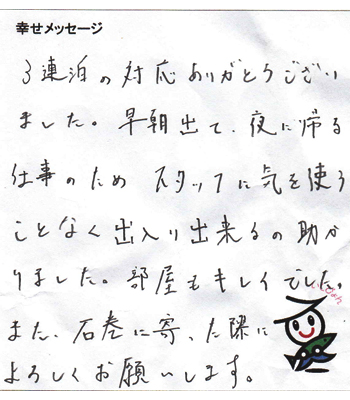 幸せメッセージ
3連泊の対応ありがとうござい
ました。早朝出て、夜に帰る
仕事のため スタッフに気を使う
ことなく出入り出来るの助か
りました。部屋もキレイでした。
また、石巻に寄、た際に
よろしくお願いします。